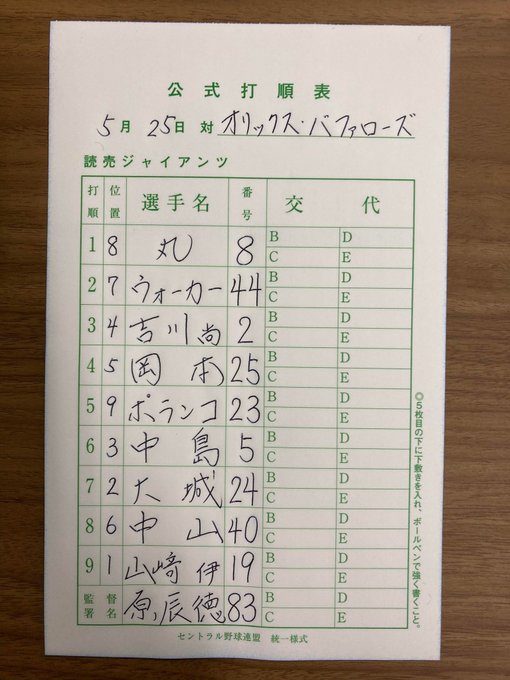 公式打順表
5月 25日 対 オリックス・バファローズ
読売ジャイアンツ
打順 位置 選手名 番号 交代
1 8 丸 8 B D C E
2 7 ウォーカー 44 B D C E
3 4 吉川尚 2 B D C E
4 5 岡本 25 B D C E
5 9 ポランコ 23 B D C E
6 3 中島 5 B D C E
7 2 大城 24 B D C E
8 6 中山 40 B D C E
9 1 山﨑伊 19 B D C E
監督署名 原辰徳 83 B D C E
セントラル野球連盟 統一様式
◎5枚目の下に下敷きを入れ、ボールペンで強く書くこと。